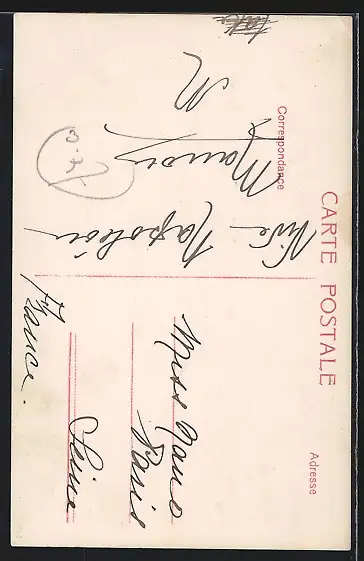 CARTE POSTALE
Correspondance
Adresse
Vive
Napoléon
Manon
Miss Nano
Paris
Seine
France.